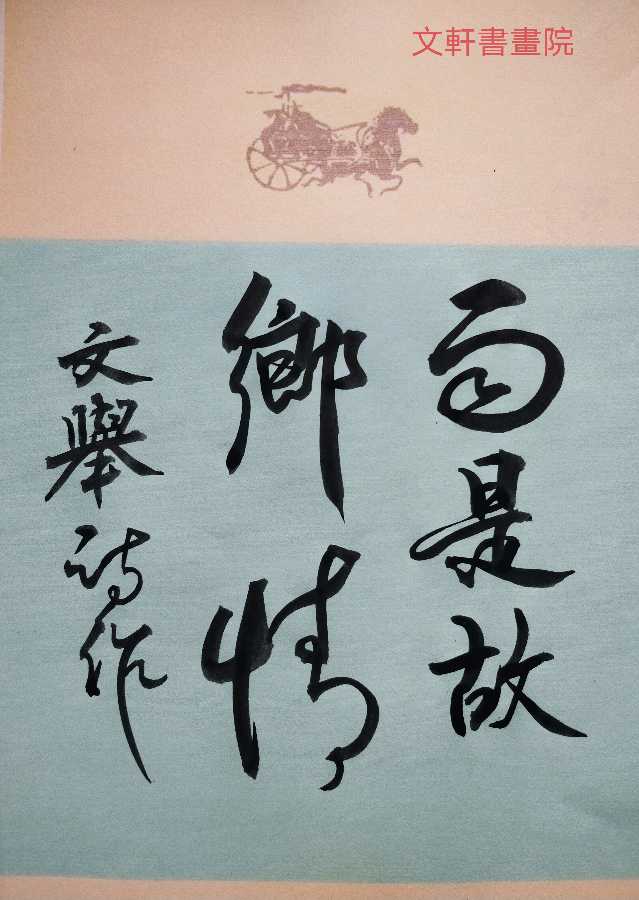 文軒書畫院
雨是故
鄉情
文舉詩作